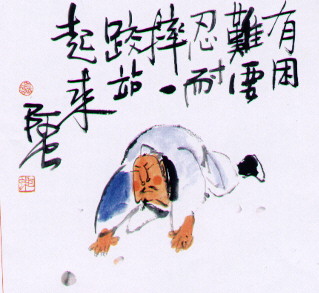 有困
難要
忍耐
摔一
跤站
起来
阿虫